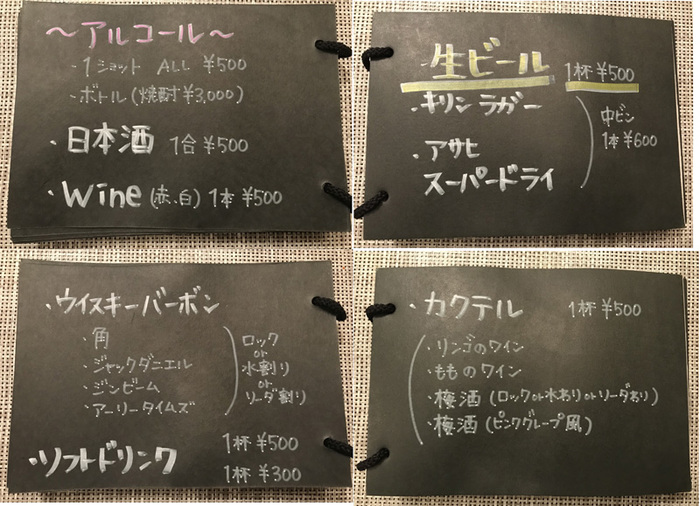 ～アルコール～
・1ショット ALL ¥500
・ボトル(焼酎¥3,000)
・日本酒 1合¥500
・Wine(赤、白) 1本¥500
・生ビール 1杯¥500
・キリンラガー
・アサヒ
スーパードライ
中ビン
1本¥600
・ウイスキーバーボン
・角
・ジャックダニエル
・ジンビーム
・アーリータイムズ
ロック
or
水割り
or
ソーダ割り
1杯¥500
・ソフトドリンク
1杯¥300
・カクテル 1杯¥500
・リンゴのワイン
・もものワイン
・梅酒(ロックor水わりorソーダわり)
・梅酒(ピンクグレープ風)